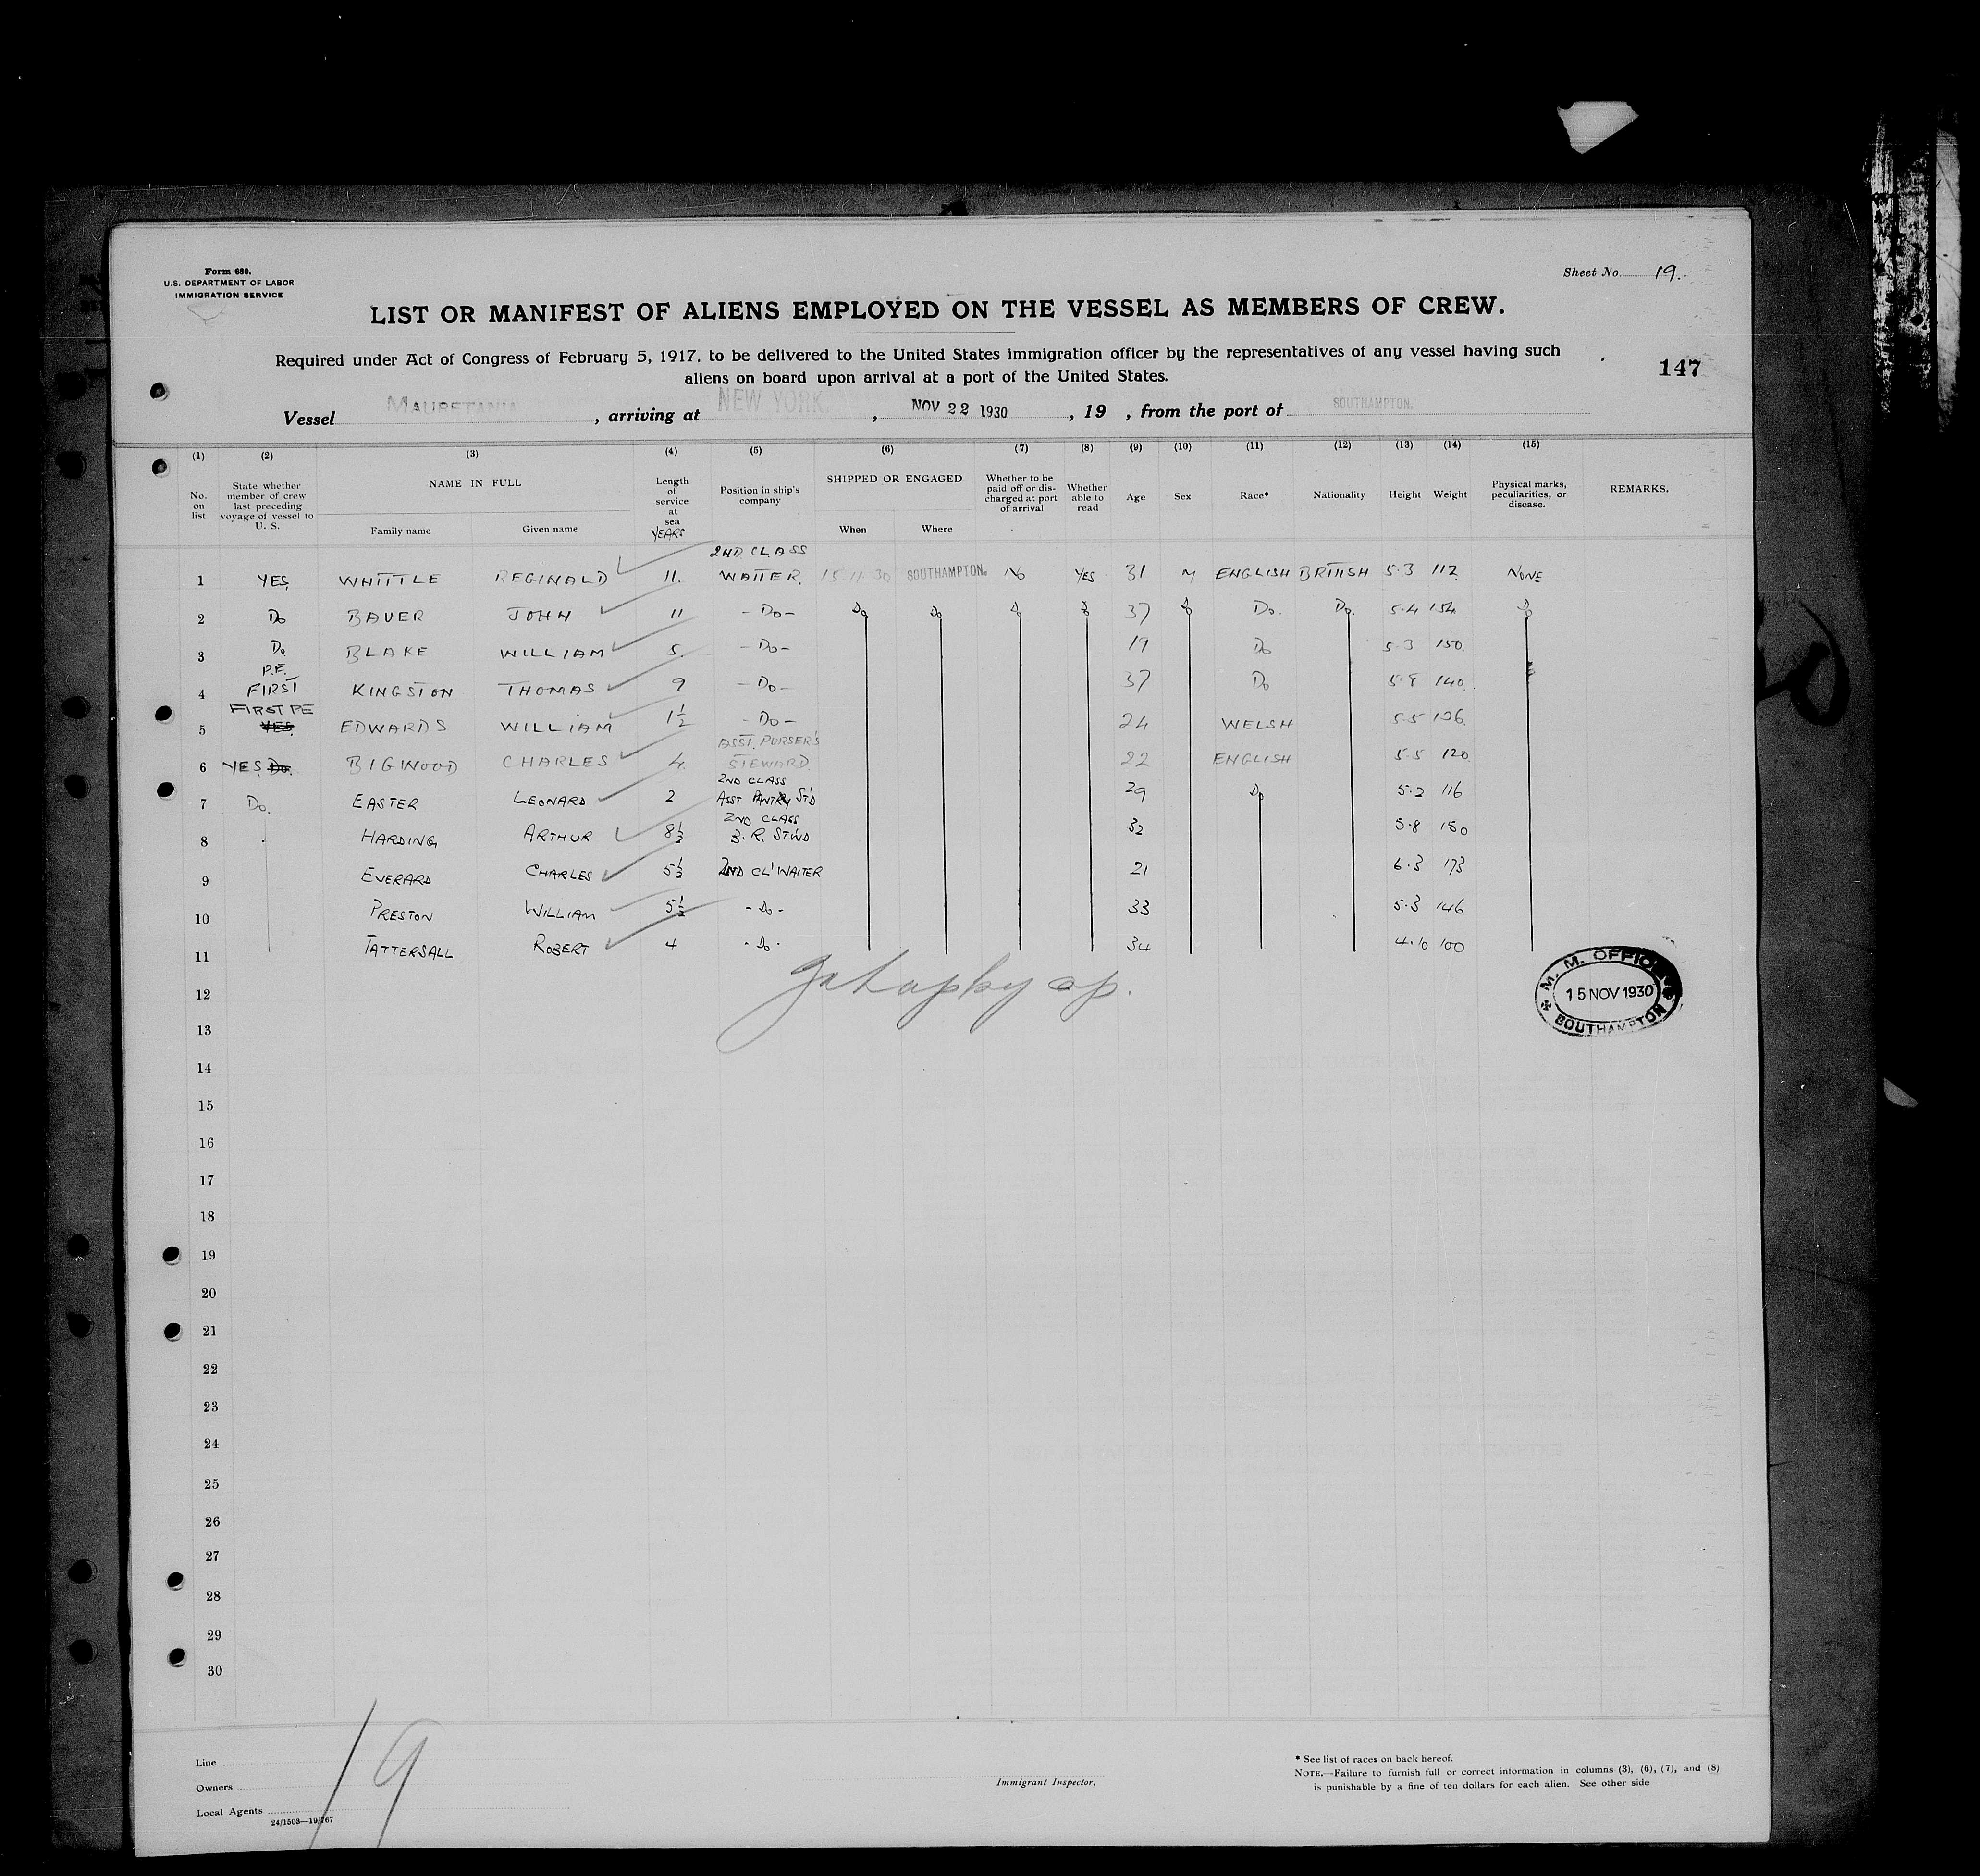 Form 680.
U.S. DEPARTMENT OF LABOR
IMMIGRATION SERVICE
Sheet No. 19.
LIST OR MANIFEST OF ALIENS EMPLOYED ON THE VESSEL AS MEMBERS OF CREW.
Required under Act of Congress of February 5, 1917, to be delivered to the United States immigration officer by the representatives of any vessel having such
aliens on board upon arrival at a port of the United States.
147
Vessel MAURETANIA, arriving at NEW YORK., NOV 22 1930, 19 , from the port of SOUTHAMPTON.
(1) (2) (3) (4) (5) (6) (7) (8) (9) (10) (11) (12) (13) (14) (15)
No. on list
State whether member of crew last preceding voyage of vessel to U. S.
NAME IN FULL
Family name Given name
Length of service at sea
YEARS
Position in ship's company
SHIPPED OR ENGAGED
When Where
Whether to be paid off or discharged at port of arrival
Whether able to read
Age Sex Race* Nationality Height Weight
Physical marks, peculiarities, or disease.
REMARKS.
2ND CLASS
1 YES. WHITTLE REGINALD 11. WAITER. 15 11 30 SOUTHAMPTON. No YES 31 M ENGLISH BRITISH 5·3 112 NONE
2 Do BAUER JOHN 11 - Do - Do Do Do Do 37 Do Do. Do. 5·4 154 Do
3 Do BLAKE WILLIAM 5. - Do - 19 Do 5·3 150.
P.E.
4 FIRST KINGSTON THOMAS 9 - Do - 37 Do 140.
FIRST PE
5 YES. EDWARDS WILLIAM 1½ - Do - 24 WELSH 5·5
ASST. PURSER'S
6 YES Do. BIGWOOD CHARLES 4. STEWARD. 22 ENGLISH 5·5 120
2ND CLASS
7 Do. EASTER LEONARD 2 ASST PANTRY ST'D 29 Do 5·2 116
2ND CLASS
8 HARDING ARTHUR 8½ B. R. STWD 32 5·8 150
9 EVERARD CHARLES 5½ 2ND CL' WAITER 21 6·3 173
10 PRESTON WILLIAM 5½ - Do - 33 5·3 146
11 TATTERSALL ROBERT 4 - Do - 34 4·10 100
12
M. M. OFFICE
15 NOV 1930
SOUTHAMPTON
13
14
15
16
17
18
19
20
21
22
23
24
25
26
27
28
29
30
19
Line
Owners
Local Agents
24/1503—19/767
Immigrant Inspector.
* See list of races on back hereof.
NOTE.—Failure to furnish full or correct information in columns (3), (6), (7), and (8)
is punishable by a fine of ten dollars for each alien. See other side